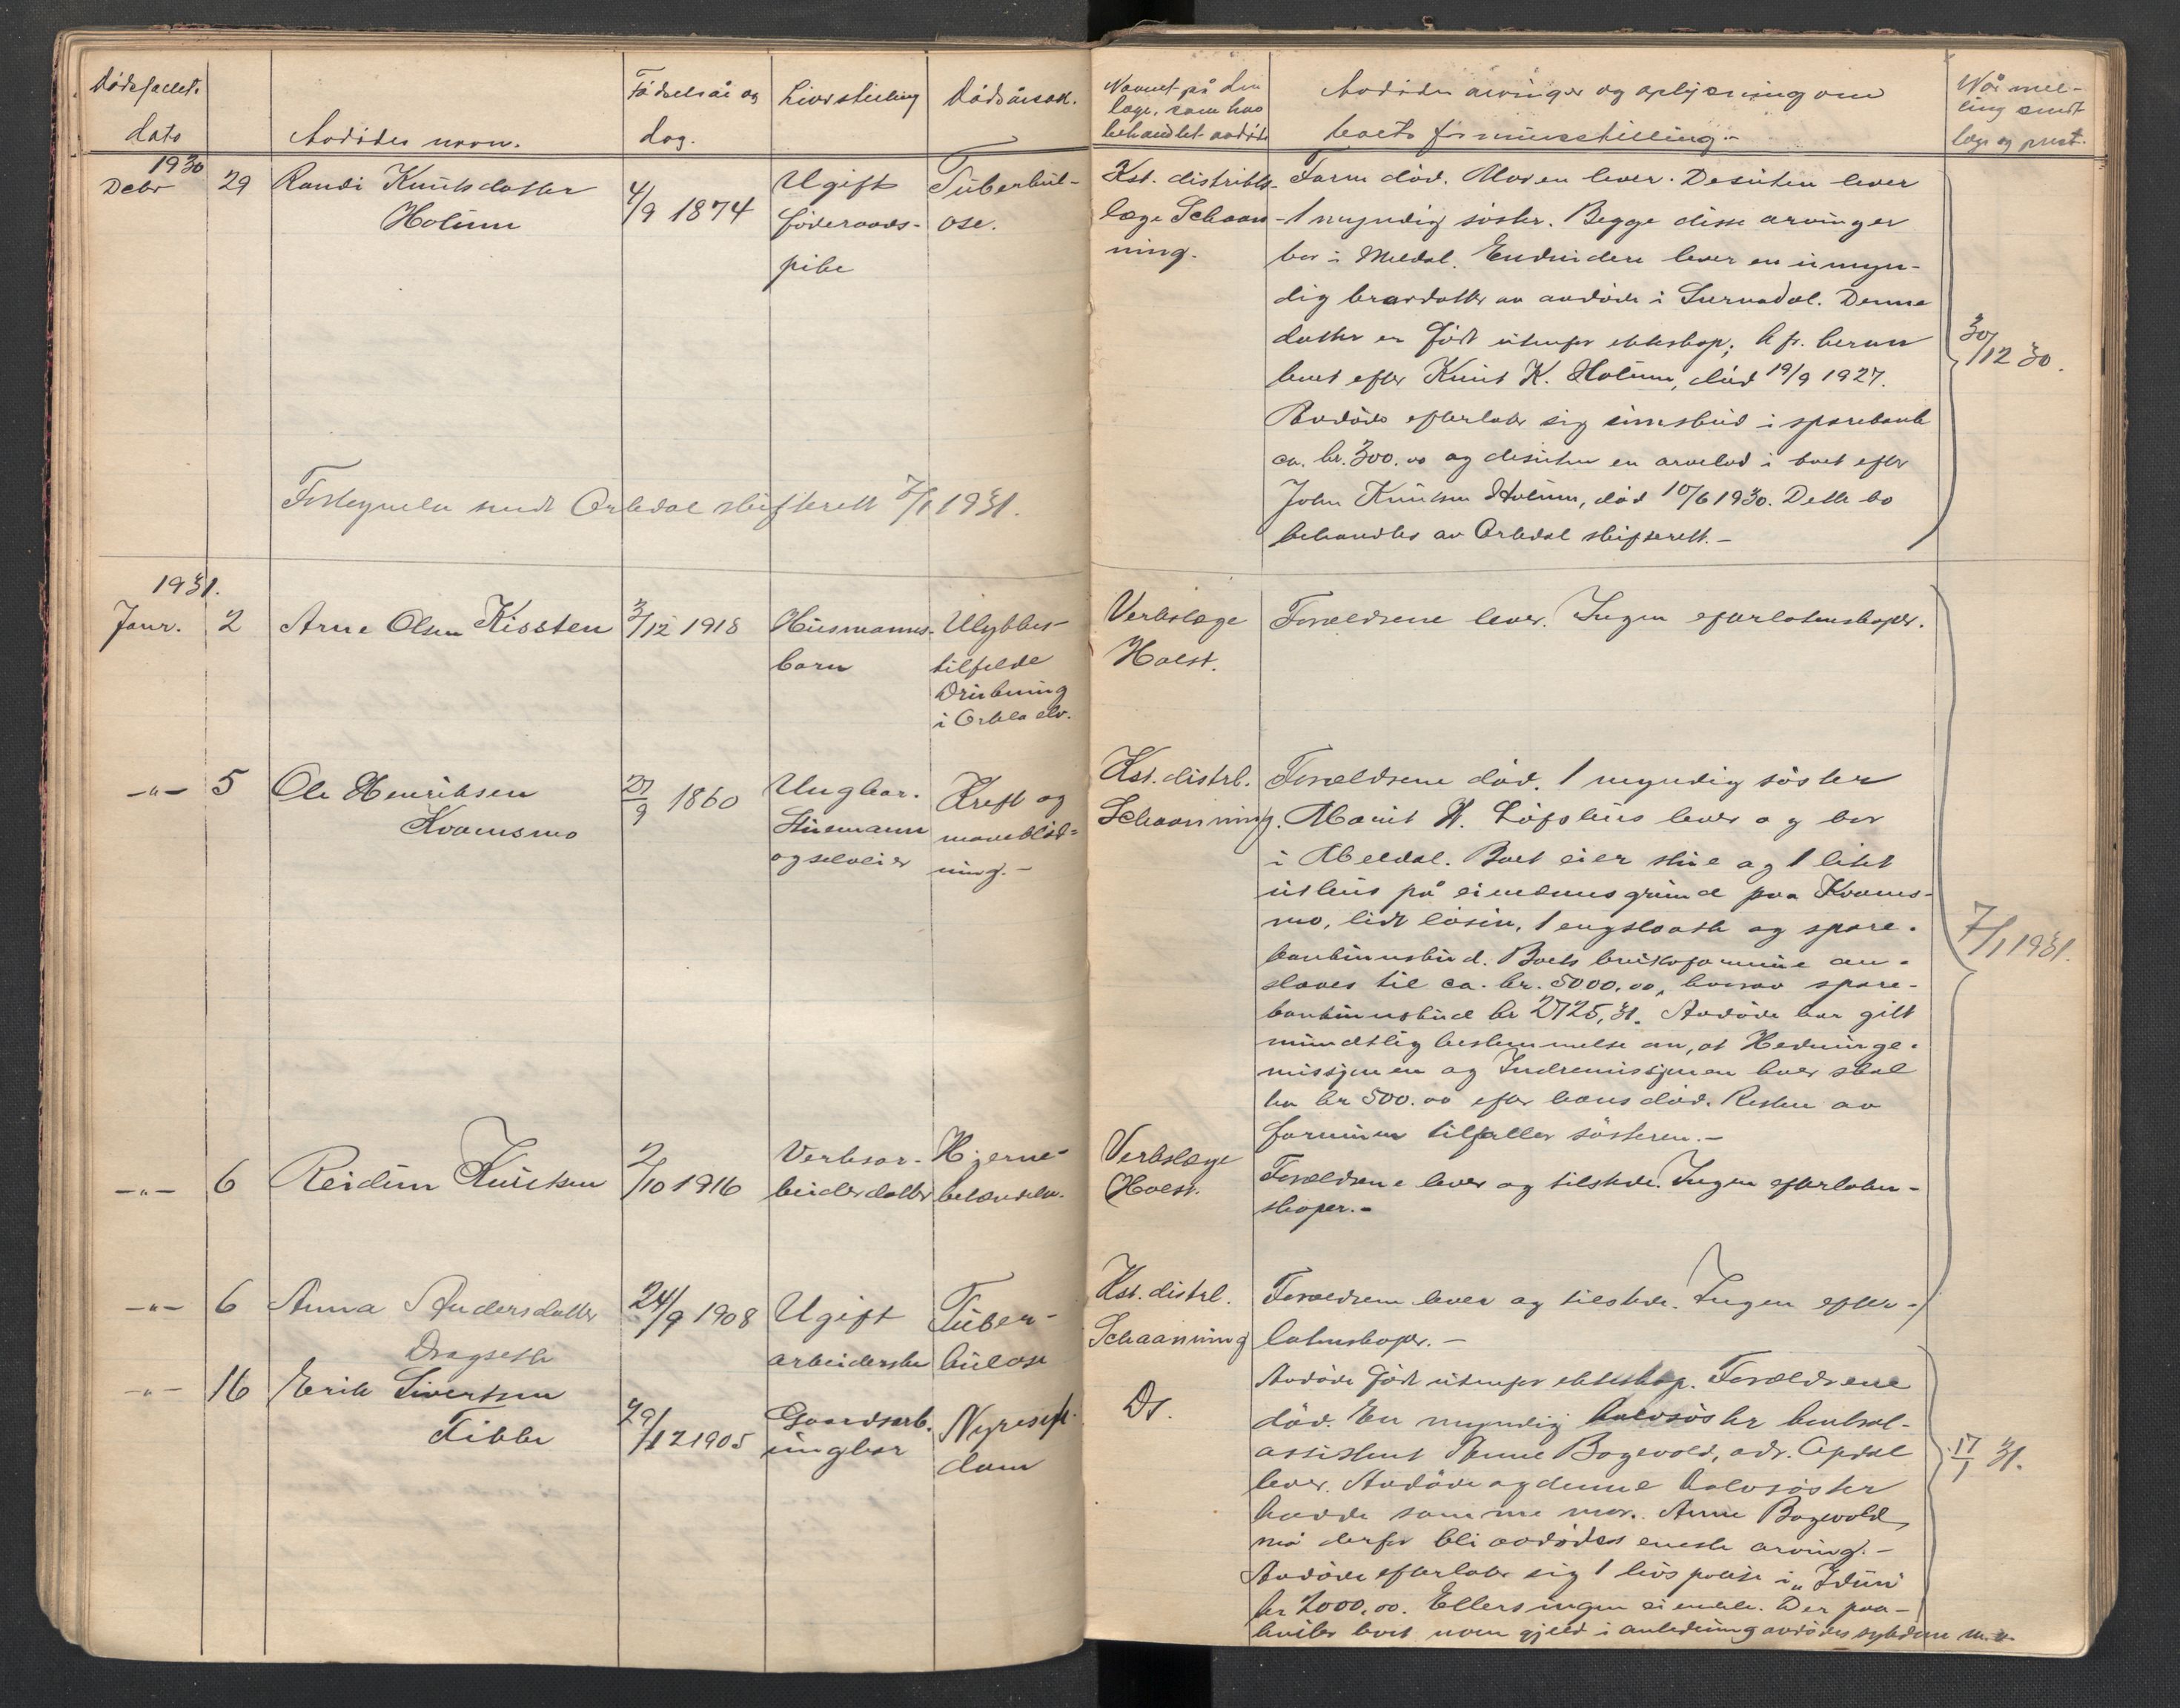 Dødsfallets
dato
Avdødes navn.
Fødselsår og
dag.
Livsstilling
Dødsårsak.
Navnet på den
læge, som har
behandlet avdøde
Avdødes arvinger og oplysning om
boets formuesstilling.-
Når mel-
ling sendt
læge og prest.
1930
Debr 29
Randi Knutsdatter
Holum
4/9 1874
Ugift
föderaads-
pike
Tüberkül-
ose.
Kst. distrikts-
læge Schaan-
ning.
Faren död. Moren lever. Desüten lever
1 myndig söster. Begge disse arvinger
bor i Meldal. Endvidere lever en ümyn-
dig brordatter av avdöde i Surnadal. Denne
datter er födt ütenfor ekteskap; kfr. heran
boet efter Knüt K. Holüm, död 19/9 1927.
Avdöde efterlater sig innsküd i sparebank
ca. kr. 300.00 og desüten en arvelod i boet efter
John Knütsen Holüm, död 10/6 1930. Dette bo
behandles av Orkdal skifterett.-
30/12 30.
Fortegnelse sendt Orkdal skifterett 7/1 1931.
1931.
Janr. 2
Arne Olsen Kissten
3/12 1918
Hüsmanns-
barn
Ulykkes-
tilfelde
Drükning
i Orkla elv.
Verkslæge
Holst.
Forældrene lever. Ingen efterlatenskaper.
-"- 5
Ole Henriksen
Kvamsmo
27/9 1860
Ungkar.
Hüsmann
og selveier
Kreft og
maveblöd-
ning.-
Kst. distrl.
Schaanning.
Forældrene död. 1 myndig söster
Marit H. Löfshüs lever og bor
i Meldal. Boet eier stüe og 1 litet
üthüs på eiendomsgründ paa Kvams-
mo, lidt lösöre, 1 engslaatt og spare-
bankinnsküd. Boets brüttoformüe an-
slaaes til ca. kr. 5000.00, hvorav spare-
bankinnsküd kr 2725,31. Avdöde har gitt
mündtlig bestemmelse om, at Hedninge-
missjonen og Indremissjonen hver skal
ha kr 500.00 efter hans död. Resten av
formüen tilfaller sösteren.-
7/1 1931.
-"- 6
Reidün Knütsen
2/10 1916
Verksar-
beiderdatter
Hjerne-
betændelse.
Verkslæge
Holst.
Forældrene lever og tilstede. Ingen efterlaten-
skaper.-
-"- 6
Anna Andersdatter
Dragsett
24/9 1908
Ugift
arbeiderske
Tüber-
külose
Kst. distrl.
Schaanning
Forældrene lever og tilstede. Ingen efter-
latenskaper.-
-"- 16
Erik Sivertsen
Fikke
29/12 1905
Gaardsarb.
üngkar
Nyresyk-
dom
Do.
Avdöde födt ütenfor ekteskap. Forældrene
död. En myndig halvsöster
assistent Anne Bogevold, adr. Opdal
lever. Avdöde og denne halvsöster
hadde samme mor. Anne Bogevold
må derfor bli avdödes eneste arving.-
Avdöde efterlater sig 1 livspolise i "Idün"
kr 2000,00. Ellers ingen eiendele. Der paa-
hviler boet noen gjeld i anledning avdödes sykdom m.v.
17/1 31.